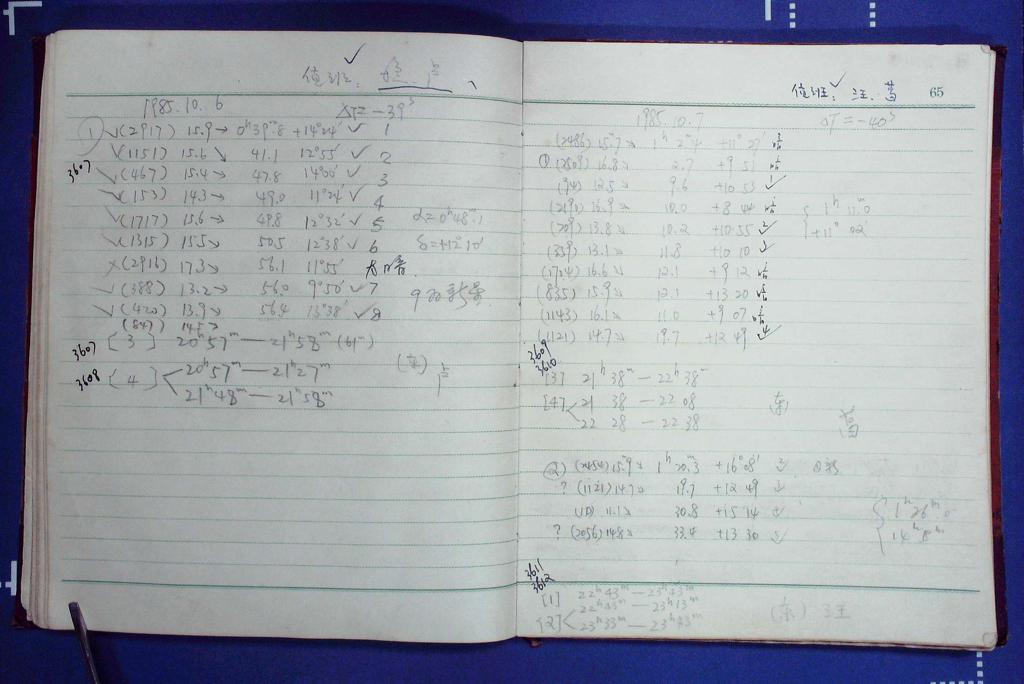 值班:
1985.10.6 ΔT=-39ˢ
① (2917) 15.9→ 0ʰ39ᵐ.8 +14°24′ ✓ 1
(1151) 15.6↘ 41.1 12°55′ ✓ 2
3607
(467) 15.4→ 47.8 14°00′ ✓ 3
(153) 14.3→ 49.0 11°24′ ✓ 4
(1717) 15.6→ 49.8 12°32′ ✓ 5 α=0ʰ48ᵐ.1
(1315) 15.5↘ 50.5 12°38′ ✓ 6 δ=+12°10′
×(2916) 17.3↘ 56.1 11°55′ 太暗.
(388) 13.2↘ 56.0 9°50′ ✓ 7
(420) 13.9↘ 56.4 13°38′ ✓ 8
(847) 14.5?
3607 [3] 20ʰ57ᵐ—21ʰ58ᵐ (61ᵐ)
3608 [4] 20ʰ57ᵐ—21ʰ27ᵐ (东)
21ʰ48ᵐ—21ʰ58ᵐ
值班: 汪. 葛 65
1985.10.7 ΔT=-40ˢ
(2486) 15.7↘ 1ʰ2ᵐ.4 +11°27′ 暗
① (2509) 16.8↘ 2.7 +9 51 暗
(94) 12.5↘ 9.6 +10 53 ✓ 1
(2191) 16.9↘ 10.0 +8 44 暗 { 1ʰ11ᵐ.0
(709) 13.8↘ 10.2 +10 55 2 +11° 02
(559) 13.1↘ 11.8 +10 10 3
(1704) 16.6↘ 12.1 +9 12 暗
(835) 15.9↘ 12.1 +13 20 暗
(1143) 16.1↘ 11.0 +9 07 暗
(1121) 14.7↘ 19.7 +12 49 4
3609
3610
[3] 21ʰ38ᵐ—22ʰ38ᵐ
[4] 21 38—22 08 (东) 葛
22 28—22 38
② (2454) 15.9↘ 1ʰ20ᵐ.3 +16°08′ 3
? (1121) 14.7↘ 19.7 +12 49
(10) 11.1↘ 30.8 +15 14 4
? (2056) 14.8↘ 33.4 +13 30 5
3611
3612
[1] 22ʰ43ᵐ—23ʰ43ᵐ
[2] 22ʰ43ᵐ—23ʰ13ᵐ (东) 汪
23ʰ33ᵐ—23ʰ43ᵐ